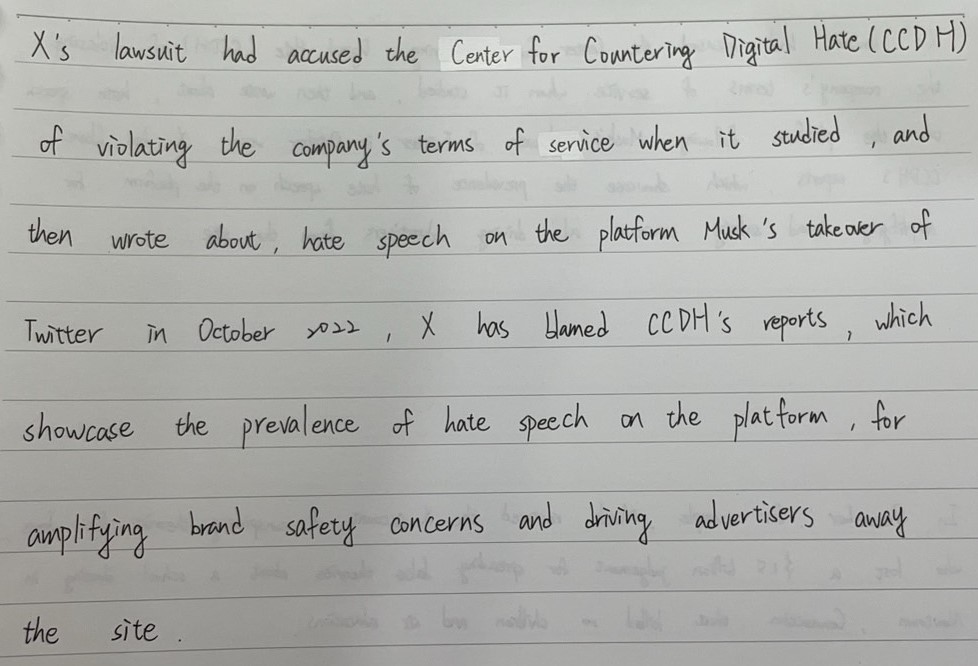 X's lawsuit had accused the Center for Countering Digital Hate (CCDH)
of violating the company's terms of service when it studied, and
then wrote about, hate speech on the platform Musk's takeover of
Twitter in October 2022, X has blamed CCDH's reports, which
showcase the prevalence of hate speech on the platform, for
amplifying brand safety concerns and driving advertisers away
the site.